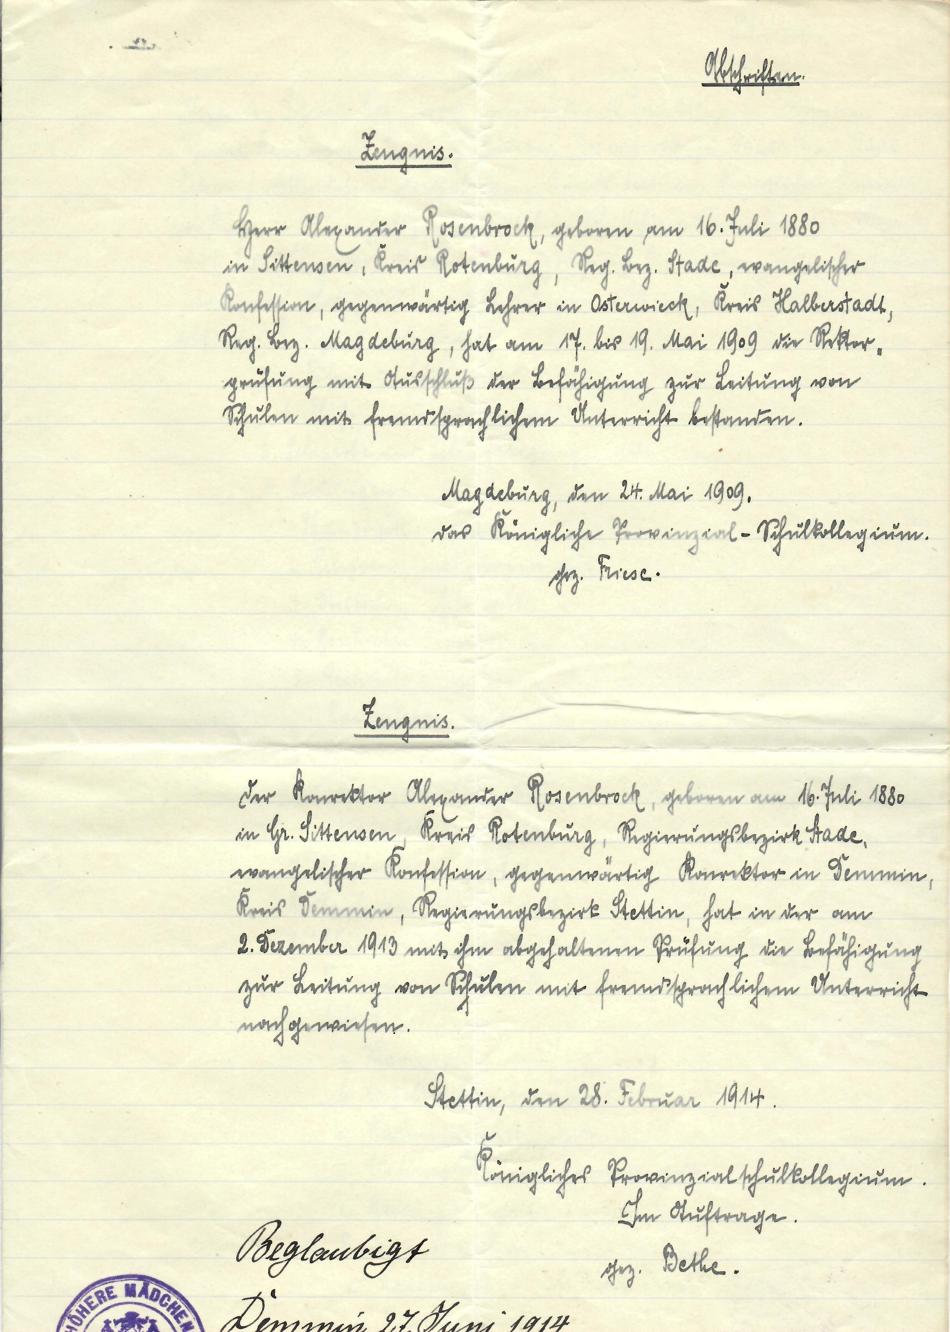 Abschriften.
Zeugnis.
Herr Alexander Rosenbrock, geboren am 16. Juli 1880
in Sittensen, Kreis Rotenburg, Reg. Bez. Stade, evangelischer
Konfession, gegenwärtig Lehrer in Osterwieck, Kreis Halberstadt,
Reg. Bez. Magdeburg, hat am 17. bis 19. Mai 1909 die Rektor-
prüfung mit Ausschluß der Befähigung zur Leitung von
Schulen mit fremdsprachlichem Unterricht bestanden.
Magdeburg, den 24. Mai 1909.
Das Königliche Provinzial-Schulkollegium.
gez. Friese.
Zeugnis.
Der Konrektor Alexander Rosenbrock, geboren am 16. Juli 1880
in Gr. Sittensen, Kreis Rotenburg, Regierungsbezirk Stade,
evangelischer Konfession, gegenwärtig Konrektor in Demmin,
Kreis Demmin, Regierungsbezirk Stettin, hat in der am
2. Dezember 1913 mit ihm abgehaltenen Prüfung die Befähigung
zur Leitung von Schulen mit fremdsprachlichem Unterricht
nachgewiesen.
Stettin, den 28. Februar 1914.
Königliches Provinzialschulkollegium.
Im Auftrage.
gez. Bethe.
Beglaubigt
HÖHERE MÄDCHEN
Demmin 27. Juni 1914